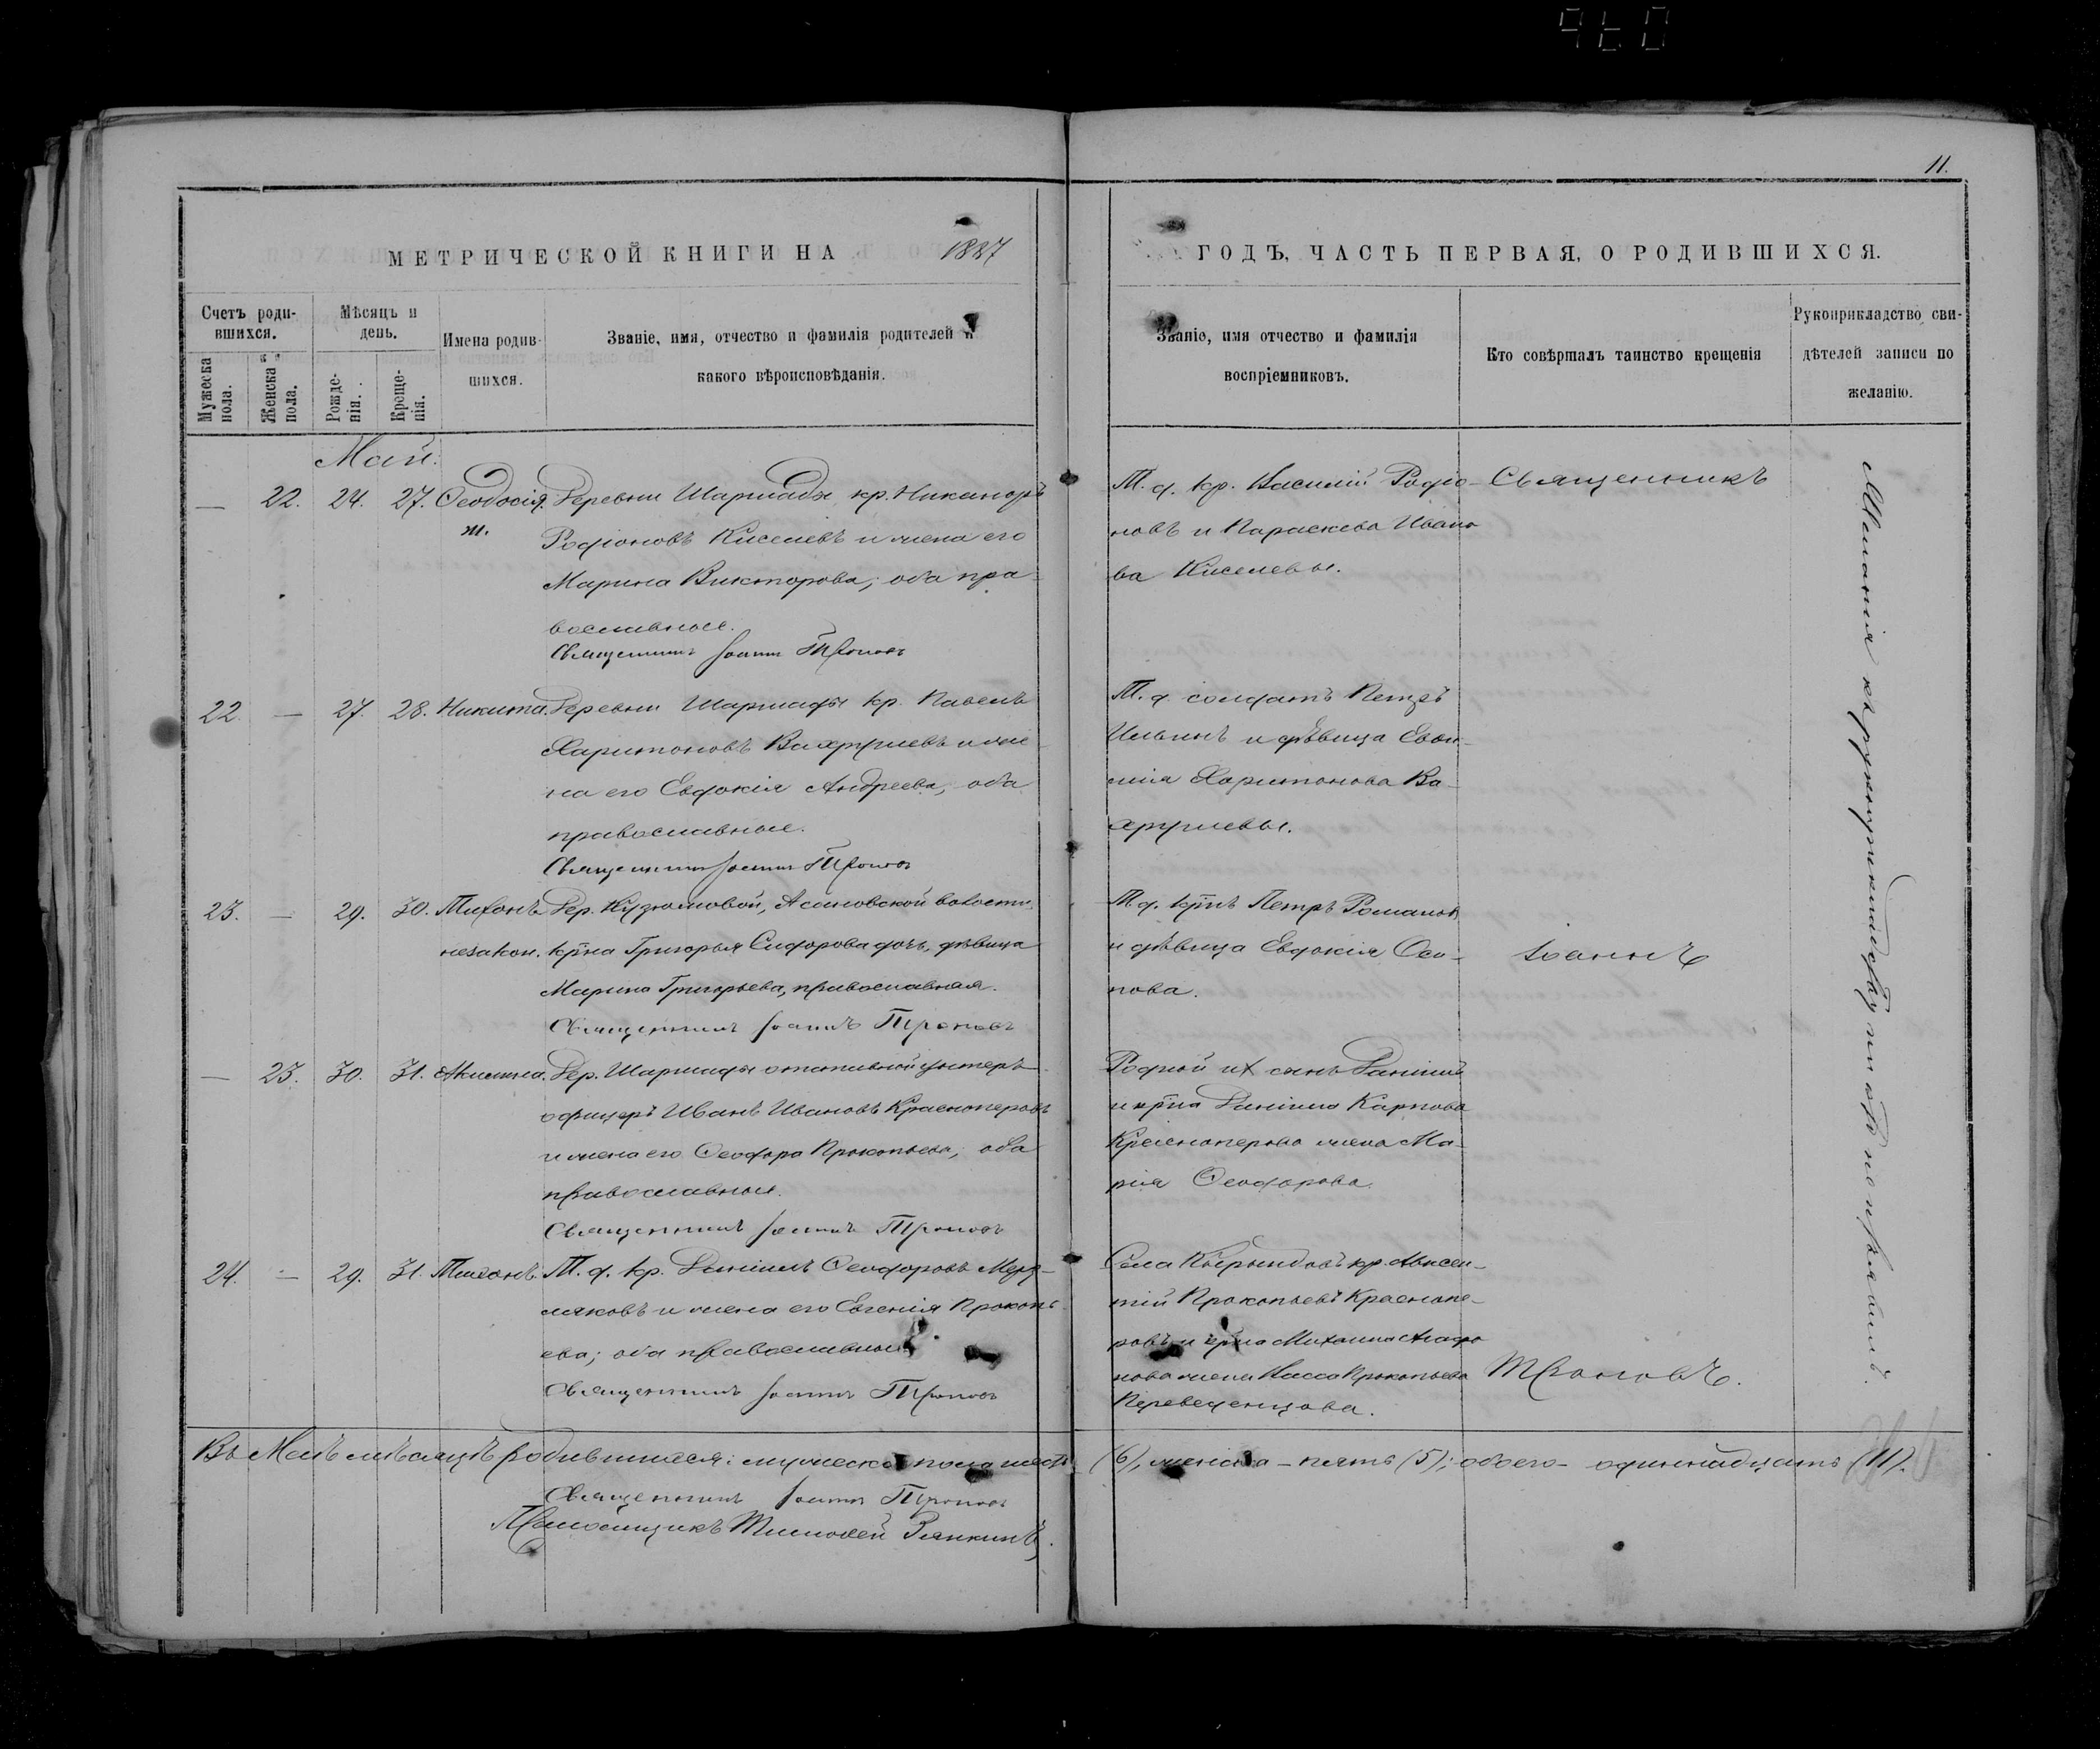 11.
МЕТРИЧЕСКОЙ КНИГИ НА 1887
ГОДЪ, ЧАСТЬ ПЕРВАЯ, О РОДИВШИХСЯ.
Счетъ роди-
вшихся.
Мужеска
пола.
Женска
пола.
Мѣсяцъ и
день.
Рожде-
нія.
Креще-
нія.
Имена родив-
шихся.
Званіе, имя, отчество и фамилія родителей и
какого вѣроисповѣданія.
Званіе, имя отчество и фамилія
воспріемниковъ.
Кто совѣршалъ таинство крещенія
Рукоприкладство сви-
дѣтелей записи по
желанію.
Май.
— 22. 24. 27. Ѳеодосія. Деревни Шармады кр. Никаноръ
ж. Родіоновъ Киселевъ и жена его
Марина Викторова; оба пра-
вославные.
Священникъ Іоаннъ Троновъ
Т. д. кр. Василій Родіо-
новъ и Параскева Ивано
ва Киселевы.
Священникъ
22. — 27. 28. Никита. Деревни Шармады кр. Павелъ
Харитоновъ Вахрушевъ и же-
на его Евдокія Андреева, оба
православные.
Священникъ Іоаннъ Троновъ
Т. д. солдатъ Петръ
Ильинъ и дѣвица Евѳи-
мія Харитонова Ва-
хрушевы.
23. — 29. 30. Тихонъ Дер. Кузюмовой, Асановской волости
незакон. кр̃на Григорья Сидорова дочь, дѣвица
Марина Григорьева, православная.
Священникъ Іоаннъ Троновъ
Т. д. кр̃нъ Петръ Романовъ
и дѣвица Евдокія Оси-
пова.
Іоаннъ
— 23. 30. 31. Акилина. Дер. Шармады отставной унтеръ-
офицеръ Иванъ Ивановъ Красноперовъ
и жена его Ѳеодора Прокопьева; оба
православные.
Священникъ Іоаннъ Троновъ
Родной их сынъ Даніилъ
и кр̃на Даніила Карпова
Красноперова жена Ма-
рія Ѳеодорова.
24. — 29. 31. Тихонъ. Т. д. кр. Даніилъ Ѳеодоровъ Мерз-
ляковъ и жена его Евгенія Прокопь-
ева; оба православные.
Священникъ Іоаннъ Троновъ
Села кр. Авксен-
тій Прокопьевъ Красноп-
ровъ и кр̃на Михаила Агафо
нова жена Прокопьева
Переведенцова.
Троновъ.
Въ Маѣ мѣсяцѣ родившихся: мужеска пола шесть (6), женска – пять (5); обоего – одиннадцать (11).
Священникъ Іоаннъ Троновъ
Псаломщикъ Тимоѳей Рянкинъ.